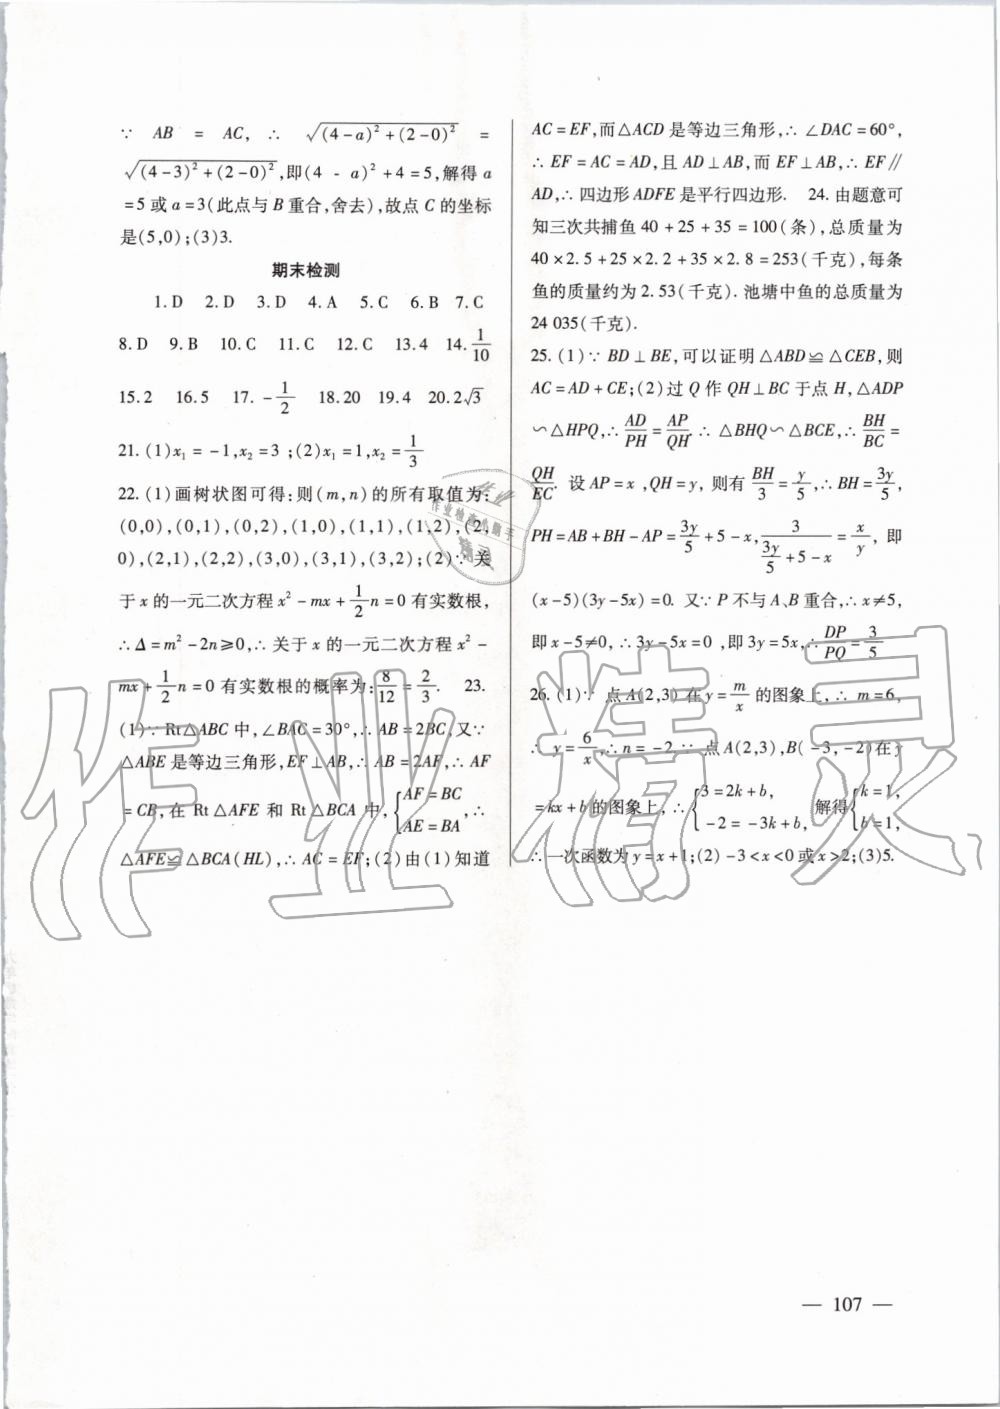 ∵ AB = AC, ∴ √((4-a)²+(2-0)²) =
√((4-3)²+(2-0)²),即(4 - a)²+4=5,解得a
=5或a=3(此点与B重合,舍去),故点C的坐标
是(5,0);(3)3.
期末检测
1.D 2.D 3.D 4.A 5.C 6.B 7.C
8.D 9.B 10.C 11.C 12.C 13.4 14.1/10
15.2 16.5 17.-1/2 18.20 19.4 20.2√3
21.(1)x₁=-1,x₂=3;(2)x₁=1,x₂=1/3
22.(1)画树状图可得:则(m,n)的所有取值为:
(0,0),(0,1),(0,2),(1,0),(1,1),(1,2),(2,
0),(2,1),(2,2),(3,0),(3,1),(3,2);(2)∵关
于x的一元二次方程x²-mx+1/2n=0有实数根,
∴Δ=m²-2n≥0,∴关于x的一元二次方程x²-
mx+1/2n=0有实数根的概率为:8/12=2/3. 23.
(1)∵Rt△ABC中,∠BAC=30°,∴AB=2BC,又∵
△ABE是等边三角形,EF⊥AB,∴AB=2AF,∴AF
=CB,在Rt△AFE和Rt△BCA中,{AF=BC AE=BA,∴
△AFE≌△BCA(HL),∴AC=EF;(2)由(1)知道
AC=EF,而△ACD是等边三角形,∴∠DAC=60°,
∴EF=AC=AD,且AD⊥AB,而EF⊥AB,∴EF∥
AD,∴四边形ADFE是平行四边形. 24.由题意可
知三次共捕鱼40+25+35=100(条),总质量为
40×2.5+25×2.2+35×2.8=253(千克),每条
鱼的质量约为2.53(千克).池塘中鱼的总质量为
24 035(千克).
25.(1)∵BD⊥BE,可以证明△ABD≌△CEB,则
AC=AD+CE;(2)过Q作QH⊥BC于点H,△ADP
∽△HPQ,∴AD/PH=AP/QH.∴△BHQ∽△BCE,∴BH/BC=
QH/EC.设AP=x,QH=y,则有BH/3=y/5,∴BH=3y/5,
PH=AB+BH-AP=3y/5+5-x,3/(3y/5+5-x)=x/y,即
(x-5)(3y-5x)=0.又∵P不与A、B重合,∴x≠5,
即x-5≠0,∴3y-5x=0,即3y=5x,∴DP/PQ=3/5
26.(1)∵点A(2,3)在y=m/x的图象上,∴m=6,
∴y=6/x,∴n=-2,∵点A(2,3),B(-3,-2)在y
=kx+b的图象上,∴{3=2k+b, -2=-3k+b, 解得{k=1, b=1,
∴一次函数为y=x+1;(2)-3<x<0或x>2;(3)5.
— 107 —
作业精灵